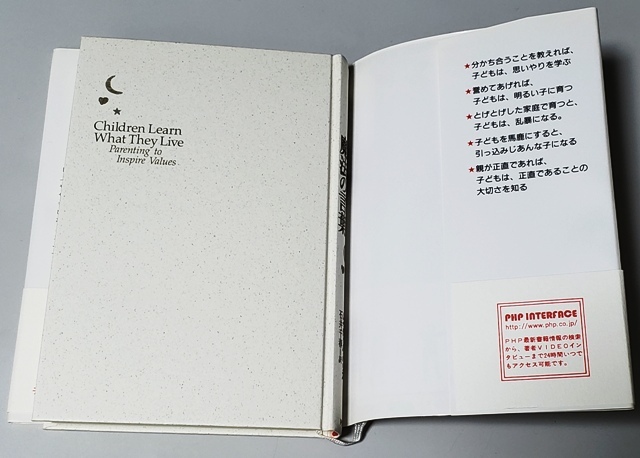 Children Learn
What They Live
Parenting to
Inspire Values
★分かち合うことを教えれば、
子どもは、思いやりを学ぶ
★誉めてあげれば、
子どもは、明るい子に育つ
★とげとげした家庭で育つと、
子どもは、乱暴になる。
★子どもを馬鹿にすると、
引っ込みじあんな子になる
★親が正直であれば、
子どもは、正直であることの
大切さを知る
PHP INTERFACE
http://www.php.co.jp/
PHP最新書籍情報の検索
から、著者VIDEOイン
タビューまで24時間いつで
もアクセス可能です。